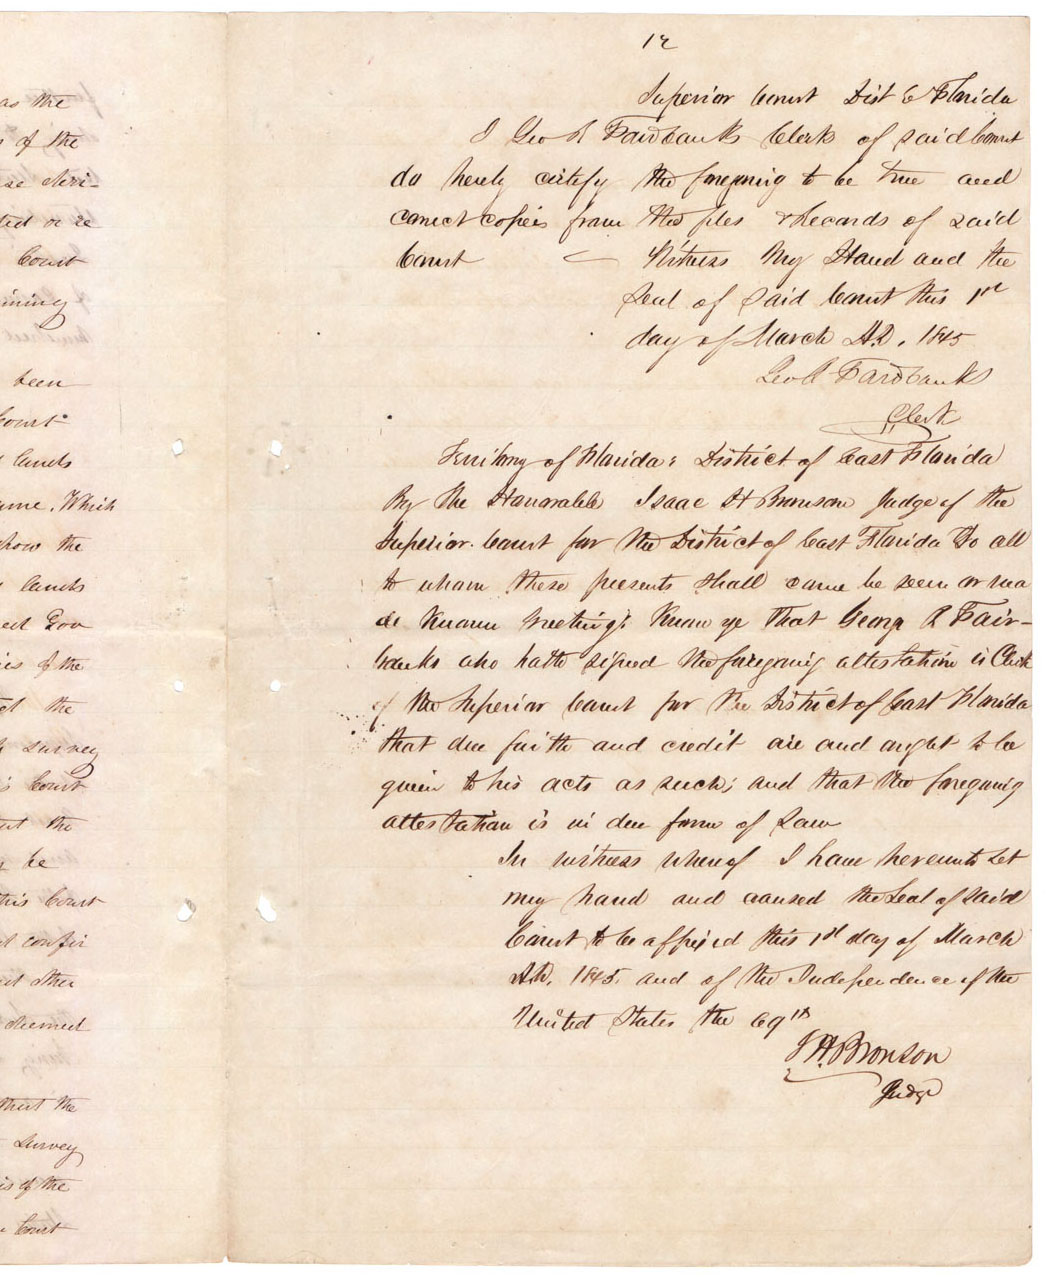 as the
s of the
ted or re
Court
ining
been
Court
lands
ame, Which
how the
lands
ies of the
et the
survey
s Court
at the
be
this Court
l confir
t other
deemed
that the
survey
is of the
Court
12
Superior Court Dist E Florida
I Geo R Fairbanks Clerk of said Court
do herely certify the foregoing to be true and
correct copies from the files & Records of said
Court Witness My Hand and the
Seal of said Court this 1st
day of March A.D. 1845
Geo R Fairbanks
Clerk
Territory of Florida: District of East Florida
By the Honorable Isaac H Bronson Judge of the
Superior Court for the District of East Florida To all
to whom these presents shall come be seen or ma
de Known Greeting: Know ye that George R Fair-
banks who hath signed the foregoing attestation is Clerk
of the Superior Court for the District of East Florida
that due faith and credit are and ought to be
given to his acts as such; and that the foregoing
attestation is in due form of Law
In witness whereof I have hereunto set
my hand and caused the Seal of said
Court to be affixed this 1st day of March
A.D. 1845 and of the Independence of the
United States the 69th
I H Bronson
Judge